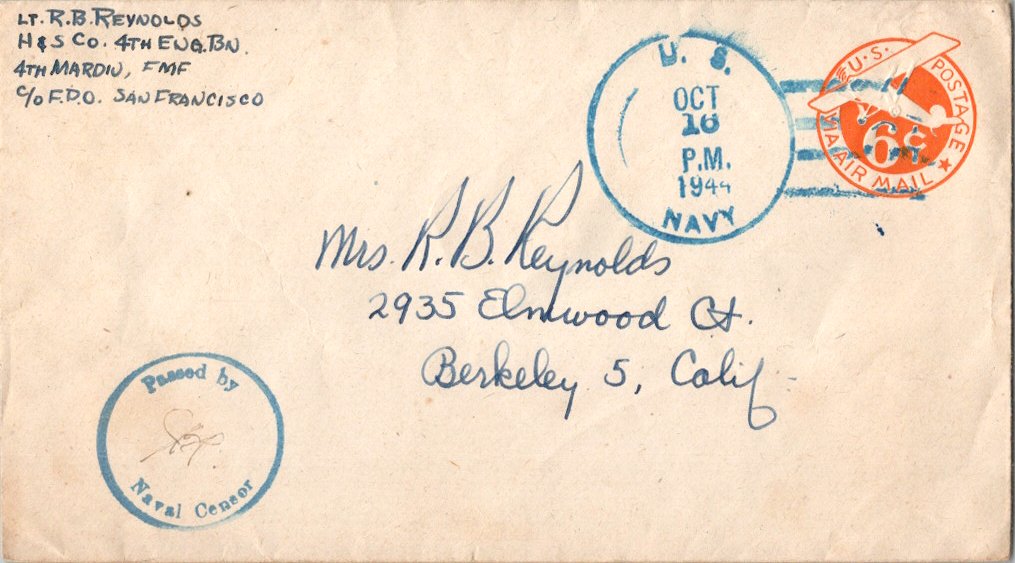 LT. R.B. REYNOLDS
H & S CO. 4TH ENG. BN.
4TH MARDIV, FMF
C/O F.P.O. SAN FRANCISCO
U. S.
OCT
16
P.M.
1944
NAVY
U.S. POSTAGE
6¢
VIA AIR MAIL
Mrs. R. B. Reynolds
2935 Elmwood Ct.
Berkeley 5, Calif.
Passed by
Naval Censor